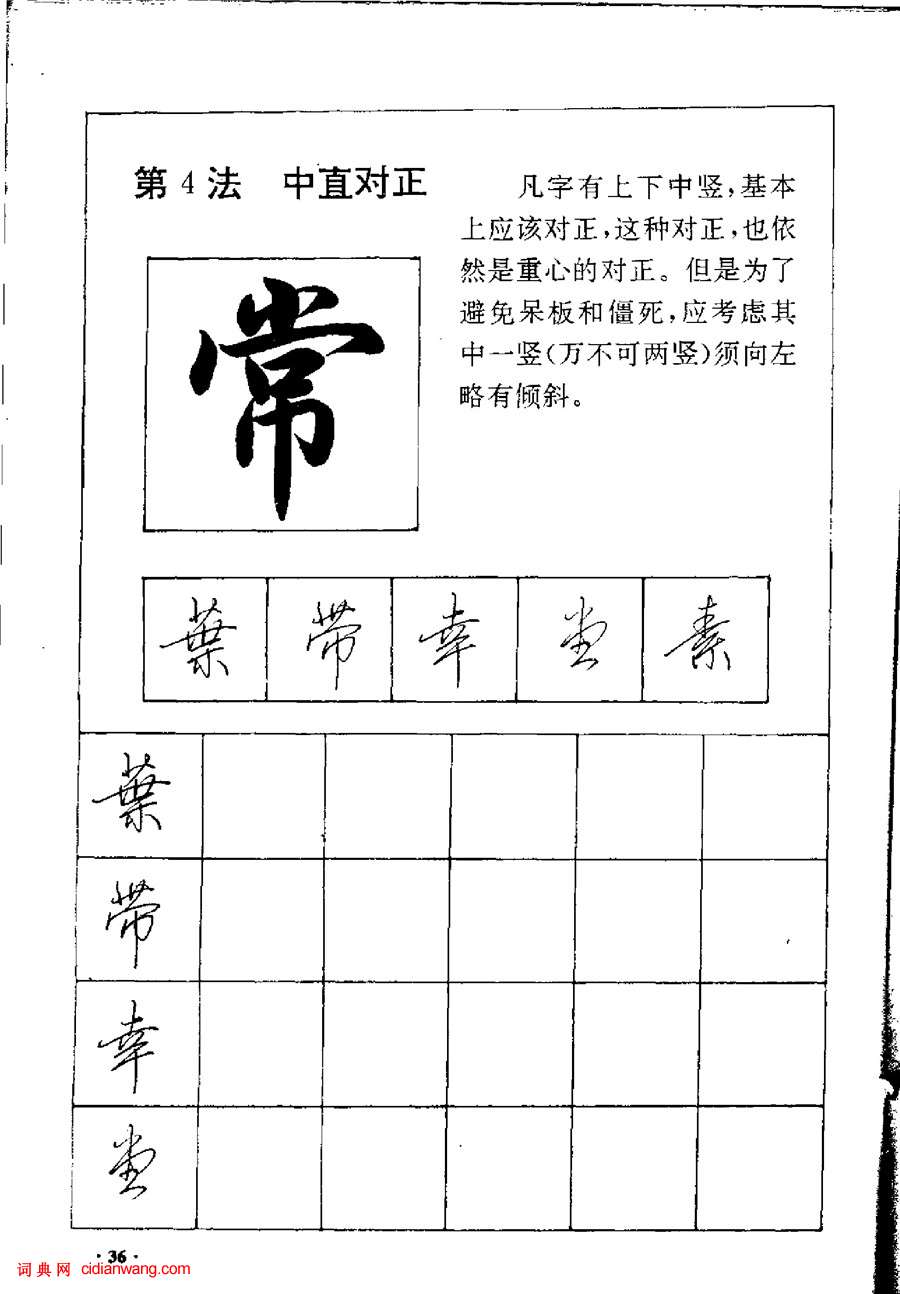 第4法 中直对正
凡字有上下中竖，基本
上应该对正，这种对正，也依
然是重心的对正。但是为了
避免呆板和僵死，应考虑其
中一竖（万不可两竖）须向左
略有倾斜。
常
葉 带 幸 堂 素
葉
带
幸
堂
·36·
词典网 cidianwang.com